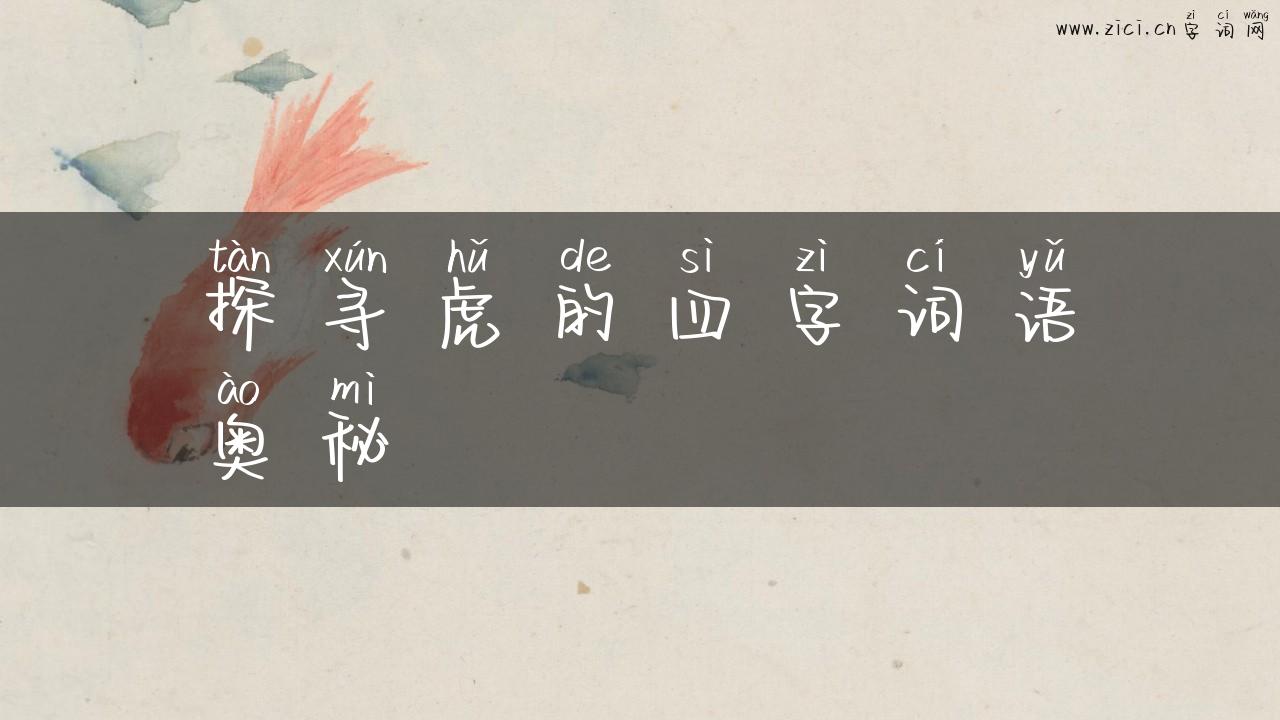 zì cí wǎng
www.zici.cn字词网
tàn xún hǔ de sì zì cí yǔ
探寻虎的四字词语
ào mì
奥秘